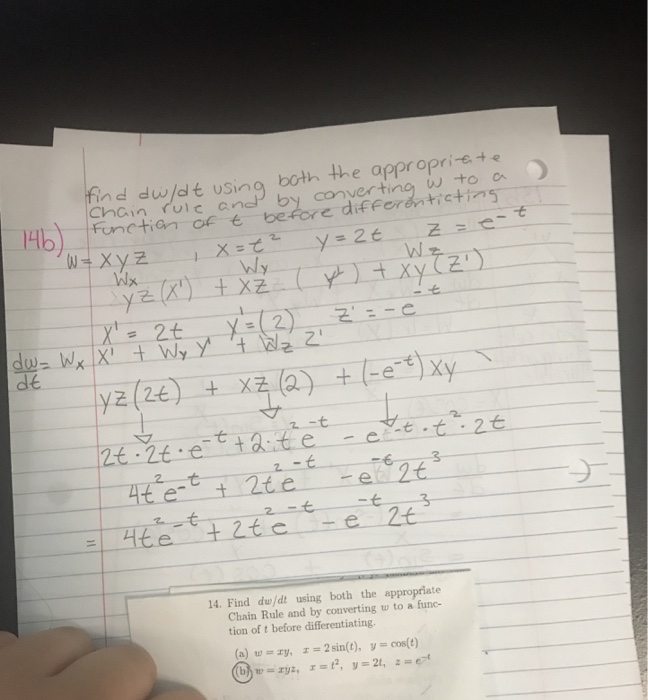 find dw/dt using both the appropriate
Chain rule and by converting w to a
Function of t before differenticting
14b) w = xyz , x = t² y = 2t z = e^-t
Wx Wy Wz
yz (x') + xz (y') + xy (z')
x' = 2t y' = (2) z' = -e^-t
dw/dt = Wx x' + Wy y' + Wz z'
yz (2t) + xz (2) + (-e^-t) xy
2t · 2t · e^-t + 2 · t² e^-t - e^-t · t² · 2t
4t² e^-t + 2t² e^-t - e^-t 2t³
= 4t² e^-t + 2t² e^-t - e^-t 2t³
14. Find dw/dt using both the appropriate
Chain Rule and by converting w to a func-
tion of t before differentiating.
(a) w = xy, x = 2 sin(t), y = cos(t)
(b) w = xyz, x = t², y = 2t, z = e^-t